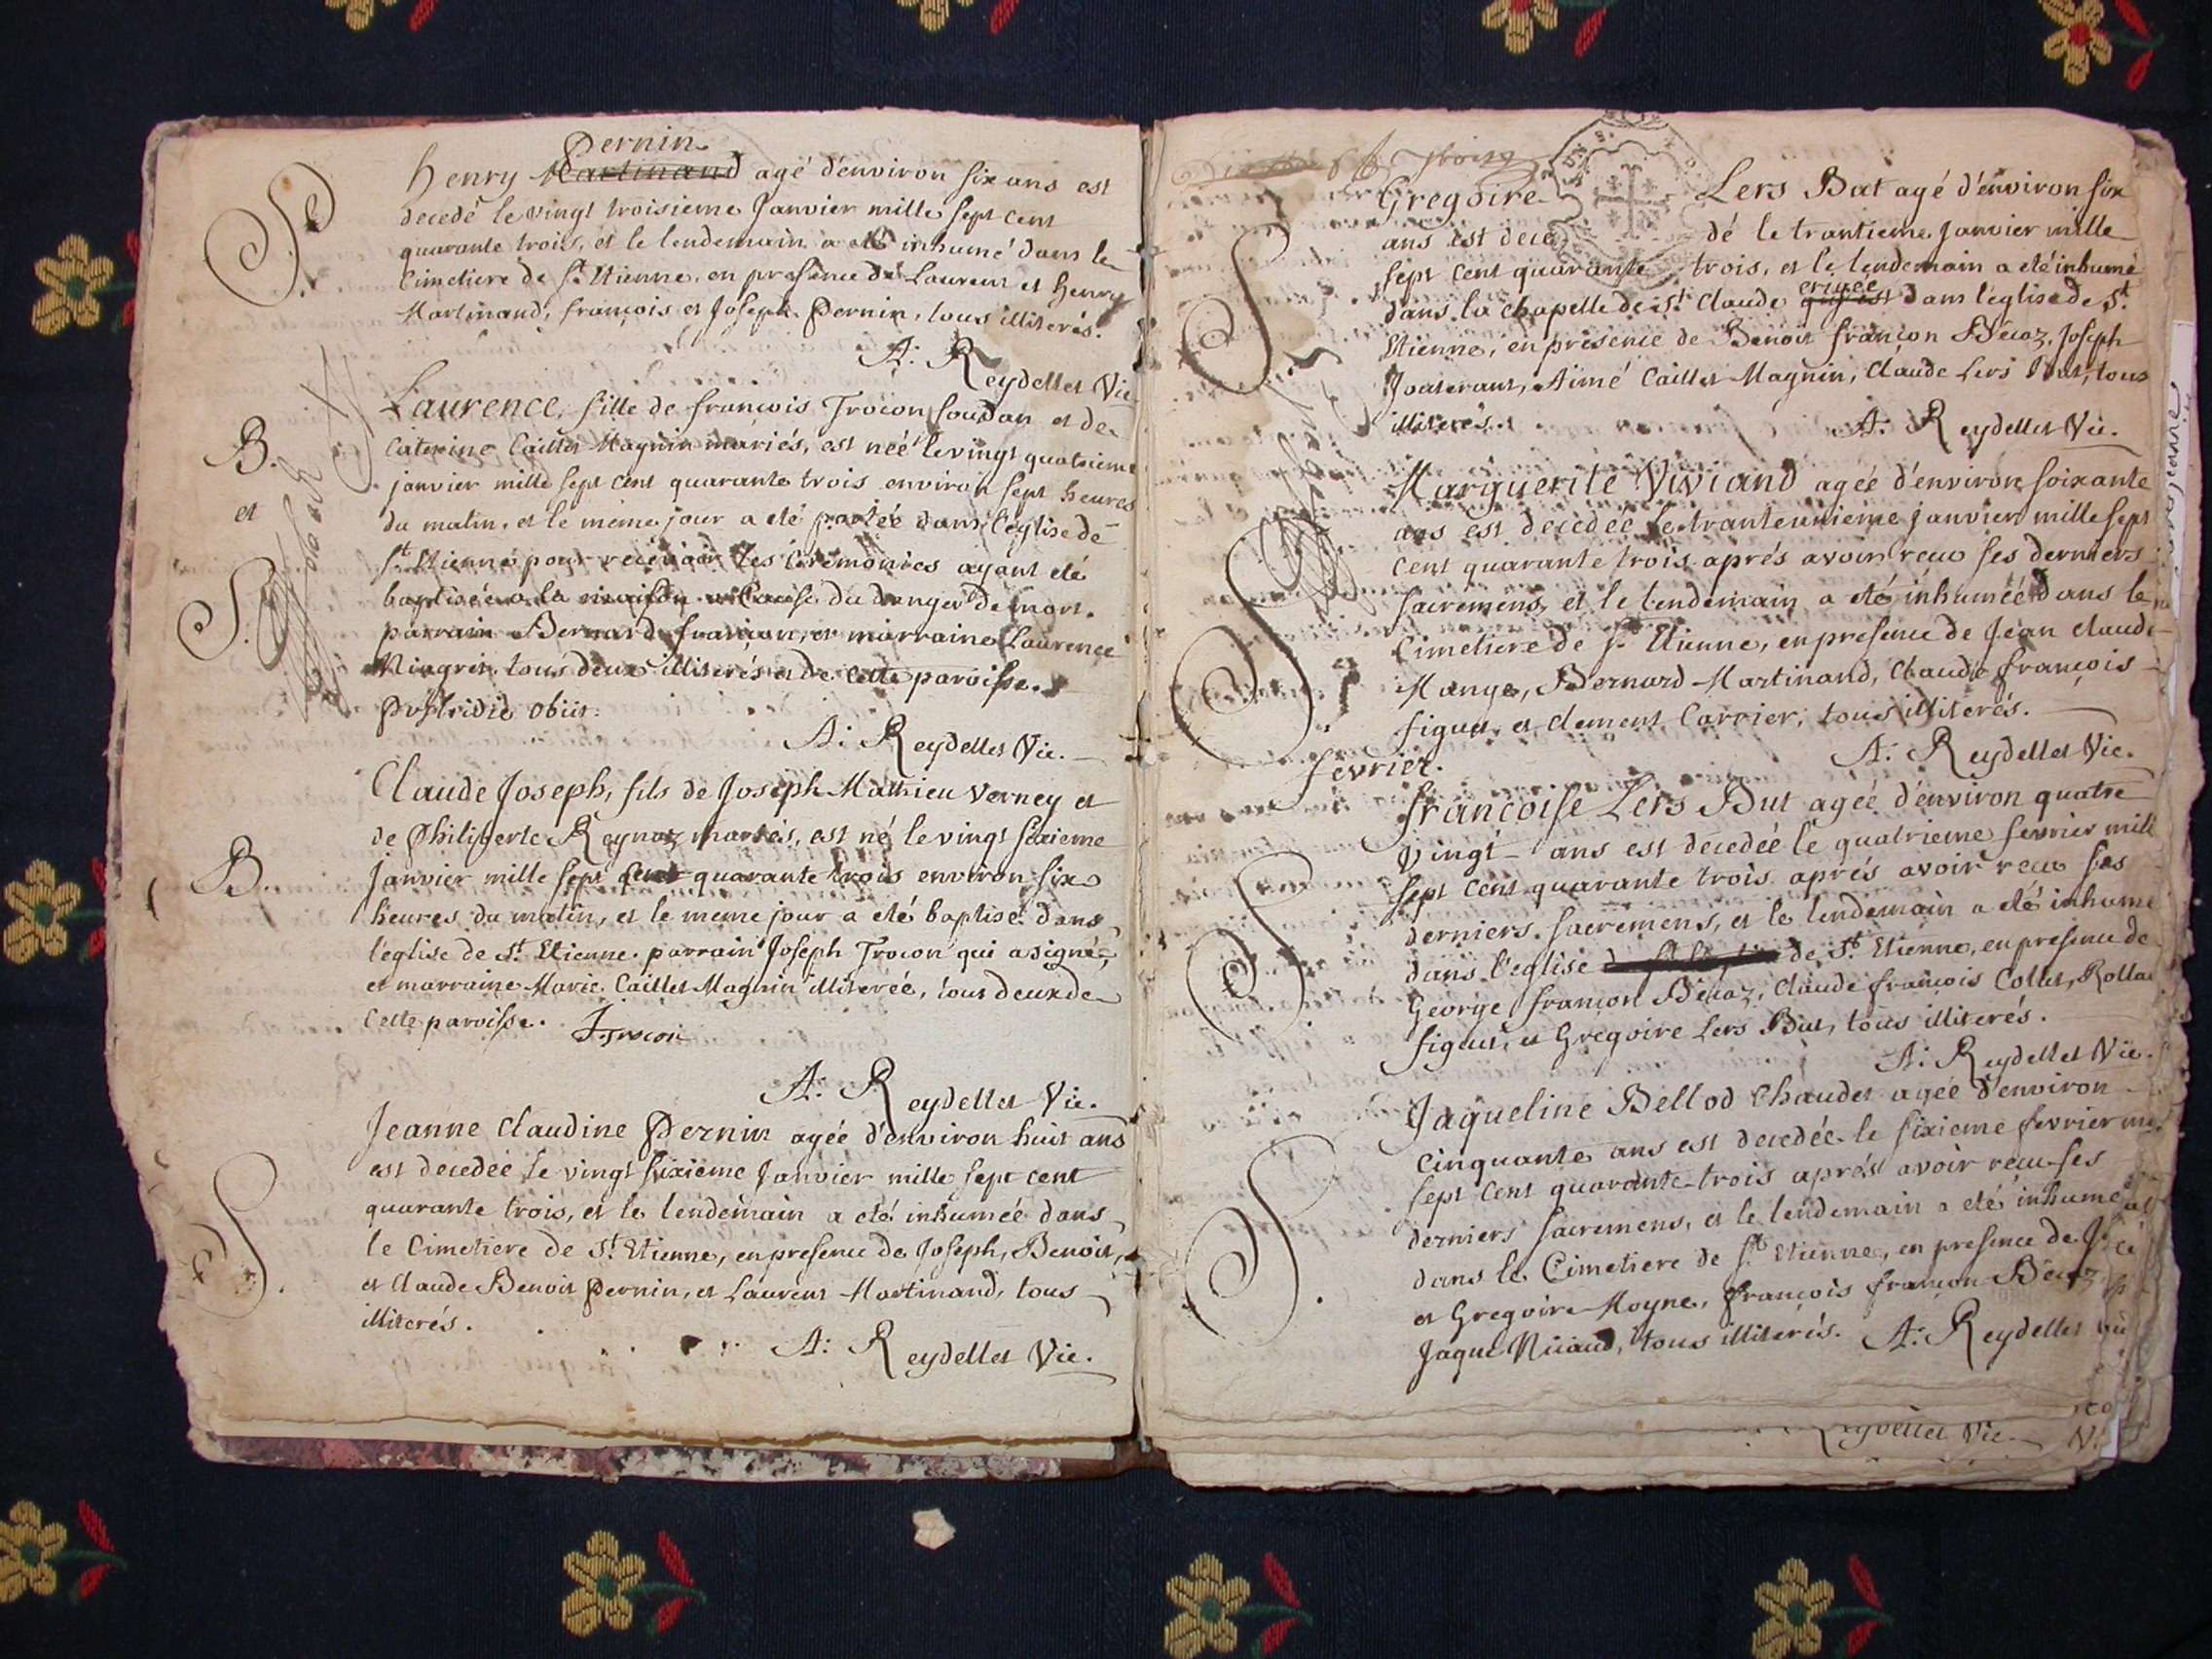 Pernin
henry Martinand agé d'environ six ans est
S
decedé le vingt troisieme Janvier mille sept cent
quarante trois, et le lendemain a eté inhumé dans le
Cimetiere de St Etienne, en presence de Laurent et henry
Martinand, françois et Joseph Pernin, tous illiterés.
A: Reydellet Vic.
Laurence, fille de françois Trocon soudan et de
B.
Caterine Caillet Magnin mariés, est neé le vingt quatrieme
janvier mille sept cent quarante trois environ sept heures
et
du matin, et le meme jour a eté porteé dans l'eglise de
St Etienne pour recevoir les ceremonies ayant eté
S.
baptiseé a la maison a Cause du danger de mort.
parrain Bernard françon, et marraine Laurence
tous deux illiterés et de cette paroisse.
postridie obiit.
A: Reydellet Vic.
Claude Joseph, fils de Joseph Mathieu Verney et
de Philiberte Reynaz mariés, est né le vingt sixieme
B.
Janvier mille sept cent quarante trois environ six
heures du matin, et le meme jour a eté baptisé dans
l'eglise de St. Etienne. parrain Joseph Trocon qui a signé,
et marraine Marie Caillet Magnin illitereé, tous deux de
Cette paroisse. J. Trocon
A: Reydellet Vic.
Jeanne Claudine Pernin ageé d'environ huit ans
est decedeé le vingt sixieme Janvier mille sept cent
quarante trois, et le lendemain a eté inhumeé dans
S.
le Cimetiere de St. Etienne, en presence de Joseph, Benoit,
et Claude Benoit Pernin, et Laurent Martinand, tous
illiterés.
A: Reydellet Vic.
Gregoire Lers But agé d'environ six
ans est dece dé le trantieme Janvier mille
S
sept cent quarante trois, et le lendemain a eté inhumé
erigeé
dans la chapelle de St. Claude qui est dans l'eglise de St.
Etienne, en presence de Benoit françon Becaz, Joseph
Aimé Caillet Magnin, Claude Lers But, tous
illiterés.
A: Reydellet Vic.
Marguerite Viviand ageé d'environ soixante
ans est decedeé le tranteunieme janvier mille sept
cent quarante trois aprés avoir recu ses derniers
S.
sacremens, et le lendemain a eté inhumeé dans le
Cimetiere de St Etienne, en presence de Jean Claude
Mange, Bernard Martinand, Claude françois
figuet, et Clement Carrier, tous illiterés.
A: Reydellet Vic.
fevrier.
francoise Lers But ageé d'environ quatre
vingt ans est decedeé le quatrieme fevrier mill
S
sept cent quarante trois aprés avoir recu ses
derniers sacremens, et le lendemain a eté inhume
dans l'eglise de St. Etienne, en presence de
George françon Becaz, Claude françois Collet, Rollan
figuet, et Gregoire Lers But, tous illiterés.
A: Reydellet Vic.
Jaqueline Bellod Chaudet ageé d'environ
cinquante ans est decedeé le sixieme fevrier
sept cent quarante trois aprés avoir recu ses
derniers sacremens, et le lendemain a eté inhumeé
S.
dans le Cimetiere de St Etienne, en presence de
et Gregoire Moyne, françois françon Becaz
Jaque Nicaud, tous illiterés. A: Reydellet
Reydellet Vic.